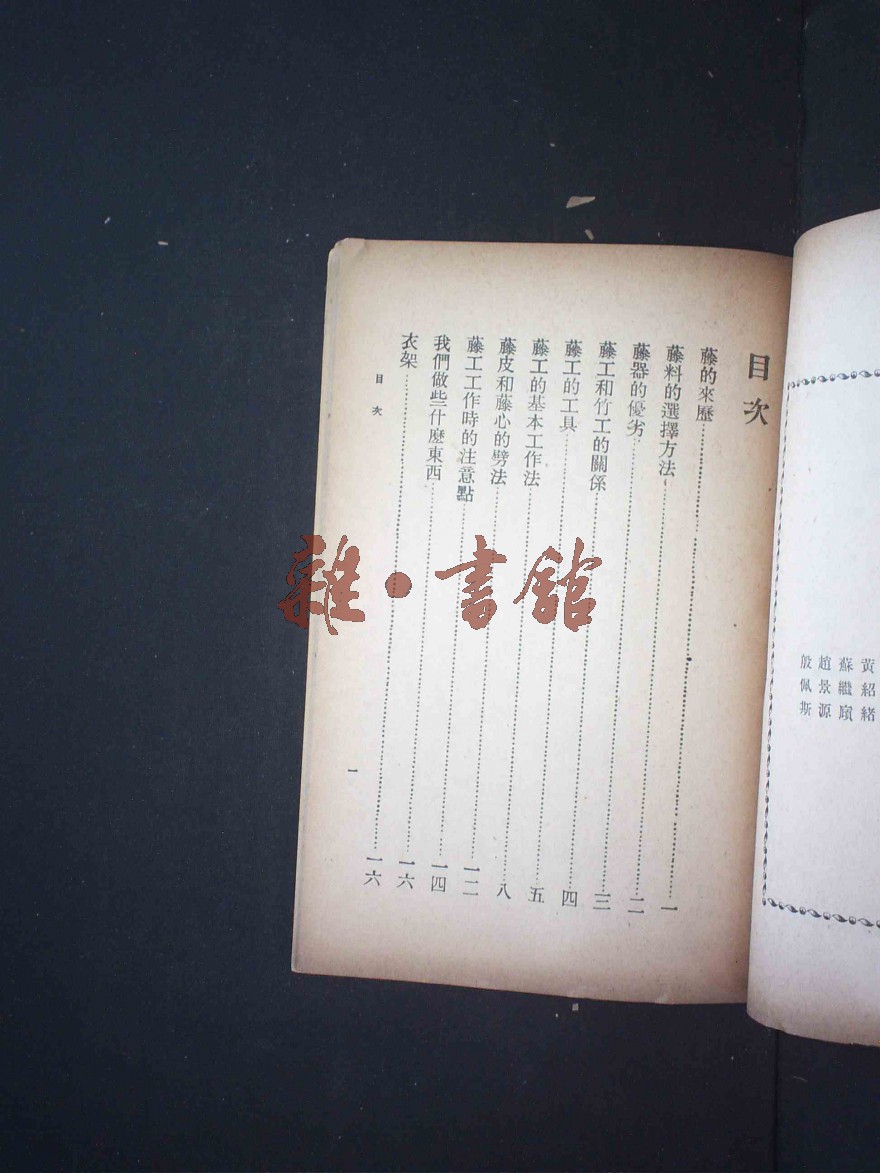 黃紹緒
蘇繼廎
趙景源
殷佩斯
目次
藤的來歷……一
藤料的選擇方法……二
藤器的優劣……三
藤工和竹工的關係……四
藤工的工具……五
藤工的基本工作法……八
藤皮和藤心的劈法……一二
藤工工作時的注意點……一四
我們做些什麼東西……一六
衣架……一六
目次
一
雜·書館